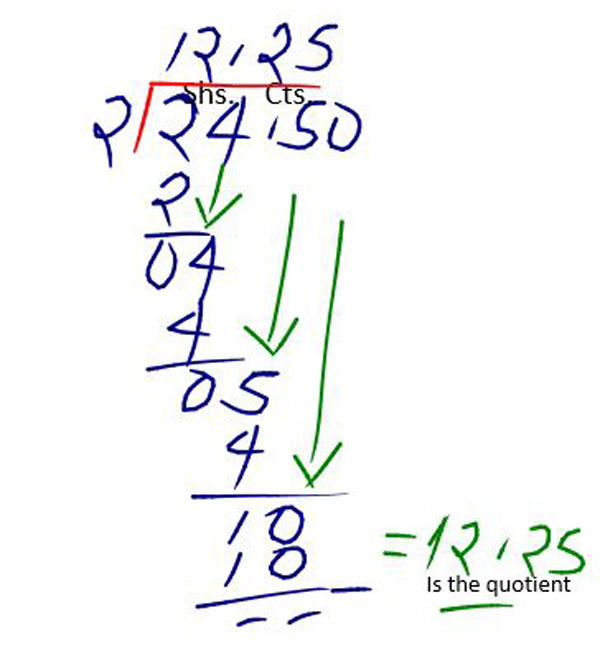 12.25
Shs. Cts.
2 24.50
2
04
4
05
4
10
10 = 12.25
Is the quotient
- -